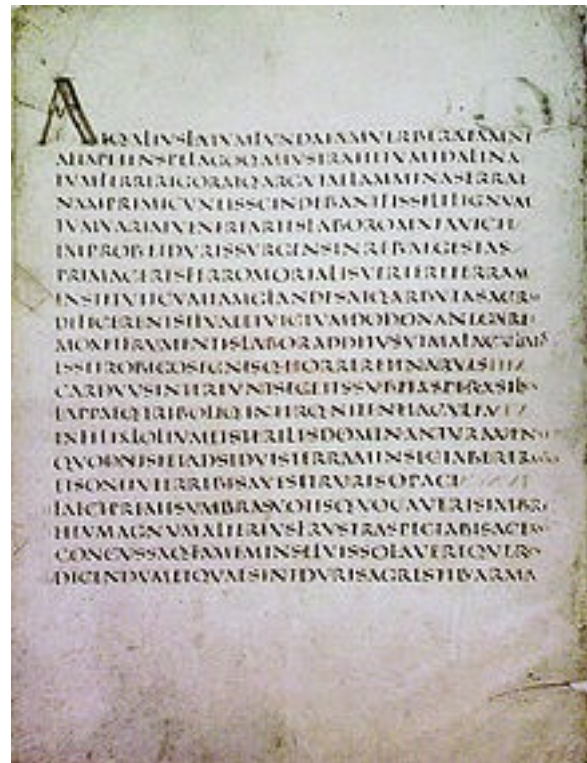 ATQALIVSLATVMFVNDAIAMVERBERATAMNE
ALTAPETENSPELAGOQALIVSTRAHITVMIDALINA
TVMFERRIRIGORATQARGVTAELAMMINASERRAE
NAMPRIMICVNEISSCINDEBANTFISSILELIGNVM
TVMVARIAEVENEREARTESLABOROMNIAVICIT
IMPROBETDVRISSVRGENSINREBVSEGESTAS
PRIMACERESFERROMORTALISVERTERETERRAM
INSTITVITCVMIAMGLANDESATQARBVTASACRAE
DEFICERENTSILVAEETVICTVMDODONANEGARE
MOXETFRVMENTISLABORADDITVSVTMALACVLMOS
ESSETROBIGOSEGNISQHORRERETINARVIS
CARDVVSINTEREVNTSEGETESSVBITASPERASILVA
LAPPAEQTRIBOLIQINTERQNITENTIACVLTA
INFELIXLOLIVMETSTERILESDOMINANTVRAVEN
QVODNISIETADSIDVISTERRAMINSECTABERERAS
ETSONITVTERREBISAVESETRVRISOPACI
FALCEPREMESVMBRASVOTISQVOCAVERISIMBR
HEVMAGNVMALTERIVSFRVSTRASPECTABISACER
CONCVSSAQFAMEMINSILVISSOLAVEREQVER
DICENDVMETQVAESINTDVRISAGRESTIBVARMA